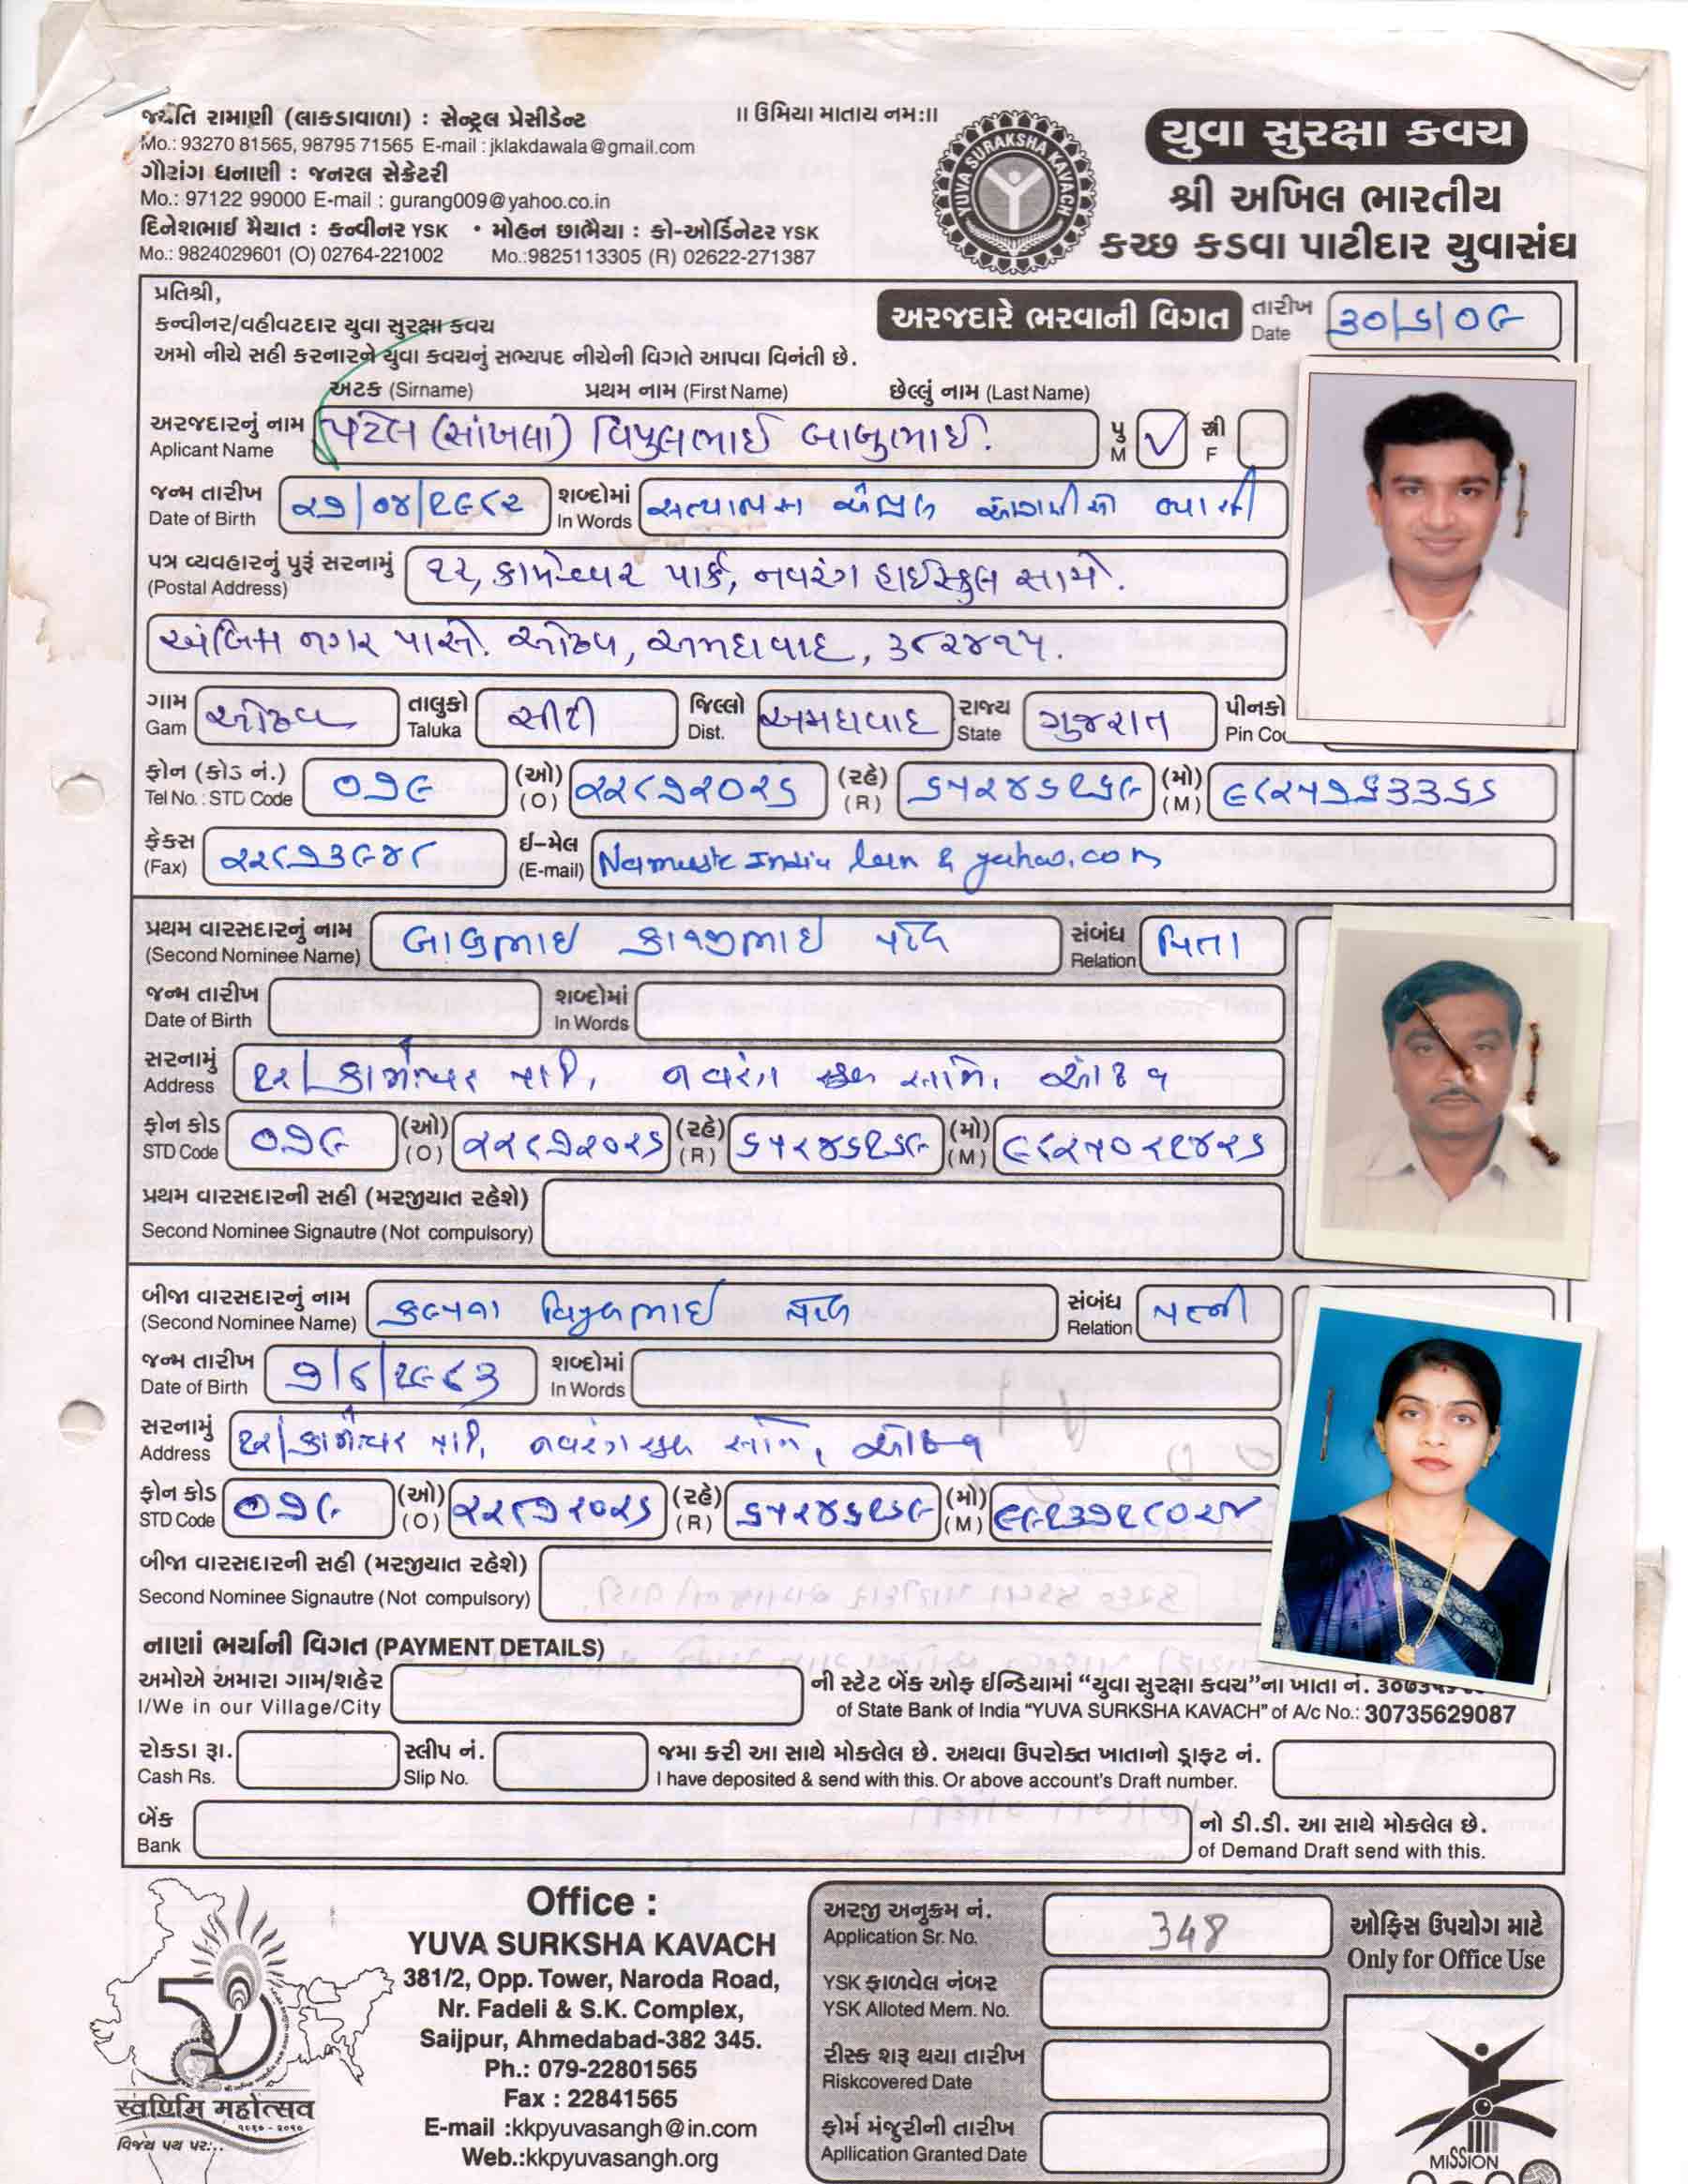 જયંતિ રામાણી (લાકડાવાળા) : સેન્ટ્રલ પ્રેસીડેન્ટ
Mo.: 93270 81565, 98795 71565 E-mail : jklakdawala@gmail.com
ગૌરાંગ ધનાણી : જનરલ સેક્રેટરી
Mo.: 97122 99000 E-mail : gurang009@yahoo.co.in
દિનેશભાઈ મૈયાત : કન્વીનર YSK • મોહન છાભૈયા : કો-ઓર્ડિનેટર YSK
Mo.: 9824029601 (O) 02764-221002 Mo.:9825113305 (R) 02622-271387
॥ ઉમિયા માતાય નમ:॥
YUVA SURAKSHA KAVACH
યુવા સુરક્ષા કવચ
શ્રી અખિલ ભારતીય
કચ્છ કડવા પાટીદાર યુવાસંઘ
પ્રતિશ્રી,
કન્વીનર/વહીવટદાર યુવા સુરક્ષા કવચ
અમો નીચે સહી કરનારને યુવા કવચનું સભ્યપદ નીચેની વિગતે આપવા વિનંતી છે.
અરજદારે ભરવાની વિગત
તારીખ Date ૩૦/૬/૦૯
અટક (Sirname) પ્રથમ નામ (First Name) છેલ્લું નામ (Last Name)
અરજદારનું નામ Aplicant Name પટેલ (સાંખલા) વિપુલભાઈ બાબુભાઈ. પુ M ✓ સ્ત્રી F
જન્મ તારીખ Date of Birth ૨૭/૦૪/૧૯૮૨ શબ્દોમાં In Words
પત્ર વ્યવહારનું પુરૂં સરનામું (Postal Address) ૧૨, કામેશ્વર પાર્ક, નવરંગ હાઈસ્કુલ સામે.
નગર પાસે. ઓઢવ, અમદાવાદ, ૩૮૨૪૧૫.
ગામ Gam ઓઢવ તાલુકો Taluka સીટી જિલ્લો Dist. અમદાવાદ રાજ્ય State ગુજરાત પીનકો Pin Co
ફોન (કોડ નં.) Tel No. : STD Code ૦૭૯ (ઓ) (O) ૨૨૮૭૨૦૨૬ (રહે) (R) ૬૫૨૪૬૧૬૯ (મો) (M) ૯૮૨૫૭૬૩૩૬૬
ફેકસ (Fax) ૨૨૮૭૩૯૪૮ ઈ-મેલ (E-mail) India yahoo.com
પ્રથમ વારસદારનું નામ (Second Nominee Name) બાબુભાઇ કાનજીભાઇ પટેલ સંબંધ Relation પિતા
જન્મ તારીખ Date of Birth શબ્દોમાં In Words
સરનામું Address ૧૨/ કામેશ્વર પાર્ક, નવરંગ સ્કુલ સામે, ઓઢવ
ફોન કોડ STD Code ૦૭૯ (ઓ) (O) ૨૨૮૭૨૦૨૬ (રહે) (R) ૬૫૨૪૬૧૬૯ (મો) (M) ૯૮૨૫૦૨૧૪૨૬
પ્રથમ વારસદારની સહી (મરજીયાત રહેશે)
Second Nominee Signautre (Not compulsory)
બીજા વારસદારનું નામ (Second Nominee Name) કલ્પના વિપુલભાઈ પટેલ સંબંધ Relation પત્ની
જન્મ તારીખ Date of Birth ૭/૮/૧૯૮૩ શબ્દોમાં In Words
સરનામું Address ૧૨/ કામેશ્વર પાર્ક, નવરંગ સ્કુલ સામે, ઓઢવ
ફોન કોડ STD Code ૦૭૯ (ઓ) (O) ૨૨૮૭૨૦૨૬ (રહે) (R) ૬૫૨૪૬૧૬૯ (મો) (M)
બીજા વારસદારની સહી (મરજીયાત રહેશે)
Second Nominee Signautre (Not compulsory)
નાણાં ભર્યાની વિગત (PAYMENT DETAILS)
અમોએ અમારા ગામ/શહેર ની સ્ટેટ બેંક ઓફ ઈન્ડિયામાં “યુવા સુરક્ષા કવચ”ના ખાતા નં.
I/We in our Village/City of State Bank of India “YUVA SURKSHA KAVACH” of A/c No.: 30735629087
રોકડા રૂા. સ્લીપ નં. જમા કરી આ સાથે મોકલેલ છે. અથવા ઉપરોક્ત ખાતાનો ડ્રાફ્ટ નં.
Cash Rs. Slip No. I have deposited & send with this. Or above account's Draft number.
બેંક નો ડી.ડી. આ સાથે મોકલેલ છે.
Bank of Demand Draft send with this.
स्वर्णिम महोत्सव
૨૦૧૦ - ૨૦૧૦
વિજય પથ પર...
Office :
YUVA SURKSHA KAVACH
381/2, Opp. Tower, Naroda Road,
Nr. Fadeli & S.K. Complex,
Saijpur, Ahmedabad-382 345.
Ph.: 079-22801565
Fax : 22841565
E-mail :kkpyuvasangh@in.com
Web.:kkpyuvasangh.org
અરજી અનુક્રમ નં. Application Sr. No. 348
YSK ફાળવેલ નંબર YSK Alloted Mem. No.
રીસ્ક શરૂ થયા તારીખ Riskcovered Date
ફોર્મ મંજુરીની તારીખ Apllication Granted Date
ઓફિસ ઉપયોગ માટે
Only for Office Use
MISSION